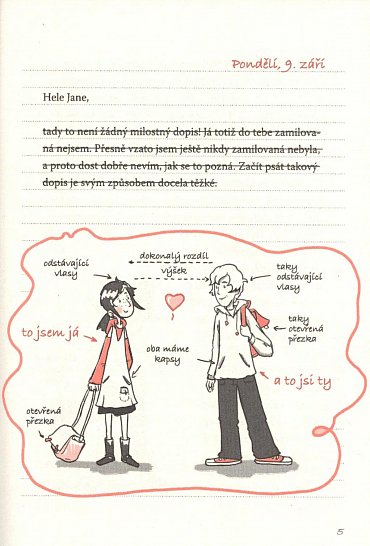 Pondělí, 9. září
Hele Jane,
tady to není žádný milostný dopis! Já totiž do tebe zamilova-
ná nejsem. Přesně vzato jsem ještě nikdy zamilovaná nebyla,
a proto dost dobře nevím, jak se to pozná. Začít psát takový
dopis je svým způsobem docela těžké.
dokonalý rozdíl
výšek
odstávající
vlasy
taky
odstávající
vlasy
to jsem já
taky
otevřená
přezka
oba máme
kapsy
a to jsi ty
otevřená
přezka
5